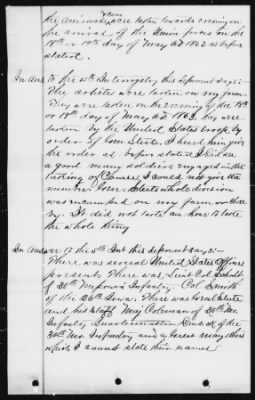 the Animals & corn were taken towards evening on
the arrival of the Union forces on the
18th or 19th day of May AD 1863 as before
stated.
In Ans. to the 4th Interrogatory this deponent says:
The articles were taken on my farm.
They were taken on the evening of the 18th
or 19th day of May AD 1863. They were
taken by the United States troops by
order of Gen Steele. I heard him give
the order as before stated I did see
a good many soldiers engaged in the
taking of Course I could not give the
number Gen. Steele whole division
was encamped on my farm or there
by. It did not take an hour to take
the whole thing
In Answer to the 5th Int this deponent says:
There was several United States Officers
present. There was Lieut Col
of 30th Missouri Infantry. Col. Smith
of the 26th Iowa. There was Genl Steele
and his Staff. Maj Coleman of 30th Mo.
Infantry Quartermaster of the
30th Mo. Infantry and a great many others
which I cannot state their names